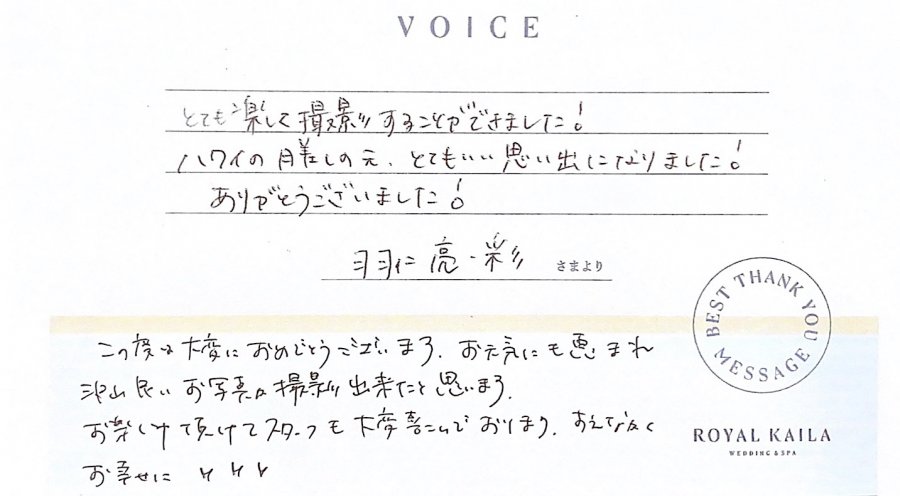 VOICE
とても楽しく撮影することができました!
ハワイの日差しの元、とてもいい思い出になりました!
ありがとうございました!
羽仁 亮・彩 さまより
BEST THANK YOU MESSAGE
この度は大変におめでとうございます。お天気にも恵まれ
沢山良いお写真が撮影出来たと思います。
お楽しみ頂けてスタッフも大変喜んでおります。末永く
お幸せに
ROYAL KAILA
WEDDING & SPA